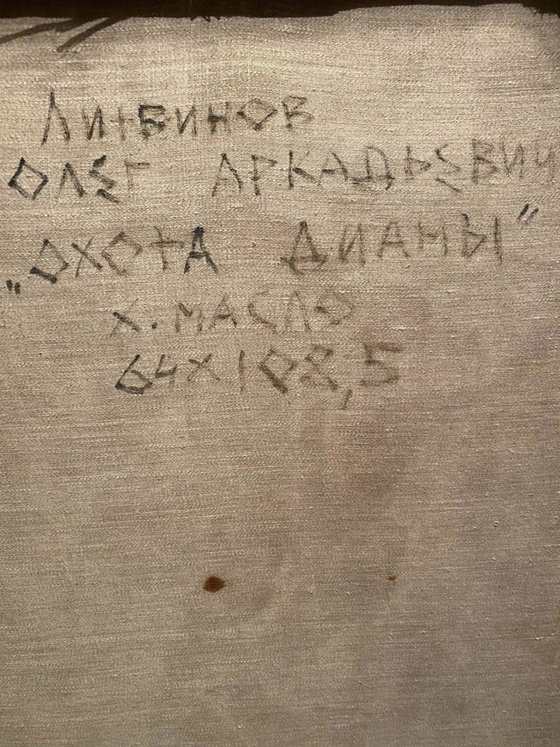 ЛИТВИНОВ
ОЛЕГ АРКАДЬЕВИЧ
„ОХОТА ДИАНЫ"
Х. МАСЛО
64Х108,5